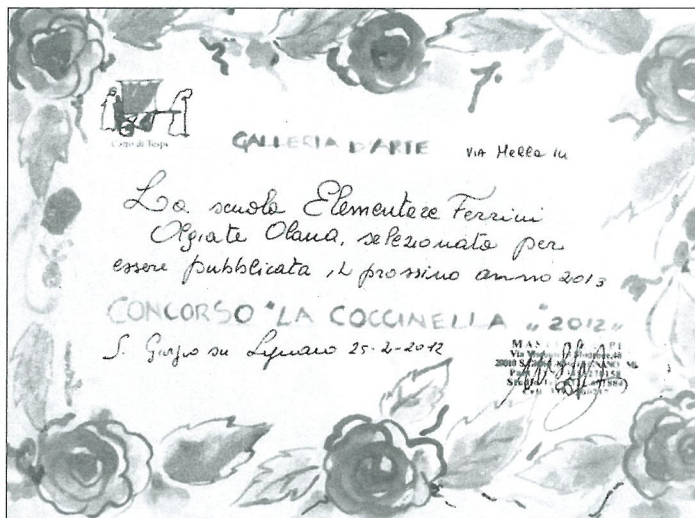 1°
Carro di Tespi
GALLERIA D'ARTE VIA Mella 14
La scuola Elementare Ferrini
Olgiate Olona, selezionata per
essere pubblicata il prossimo anno 2013
CONCORSO "LA COCCINELLA" 2012"
S. Giorgio su Legnano 25-2-2012